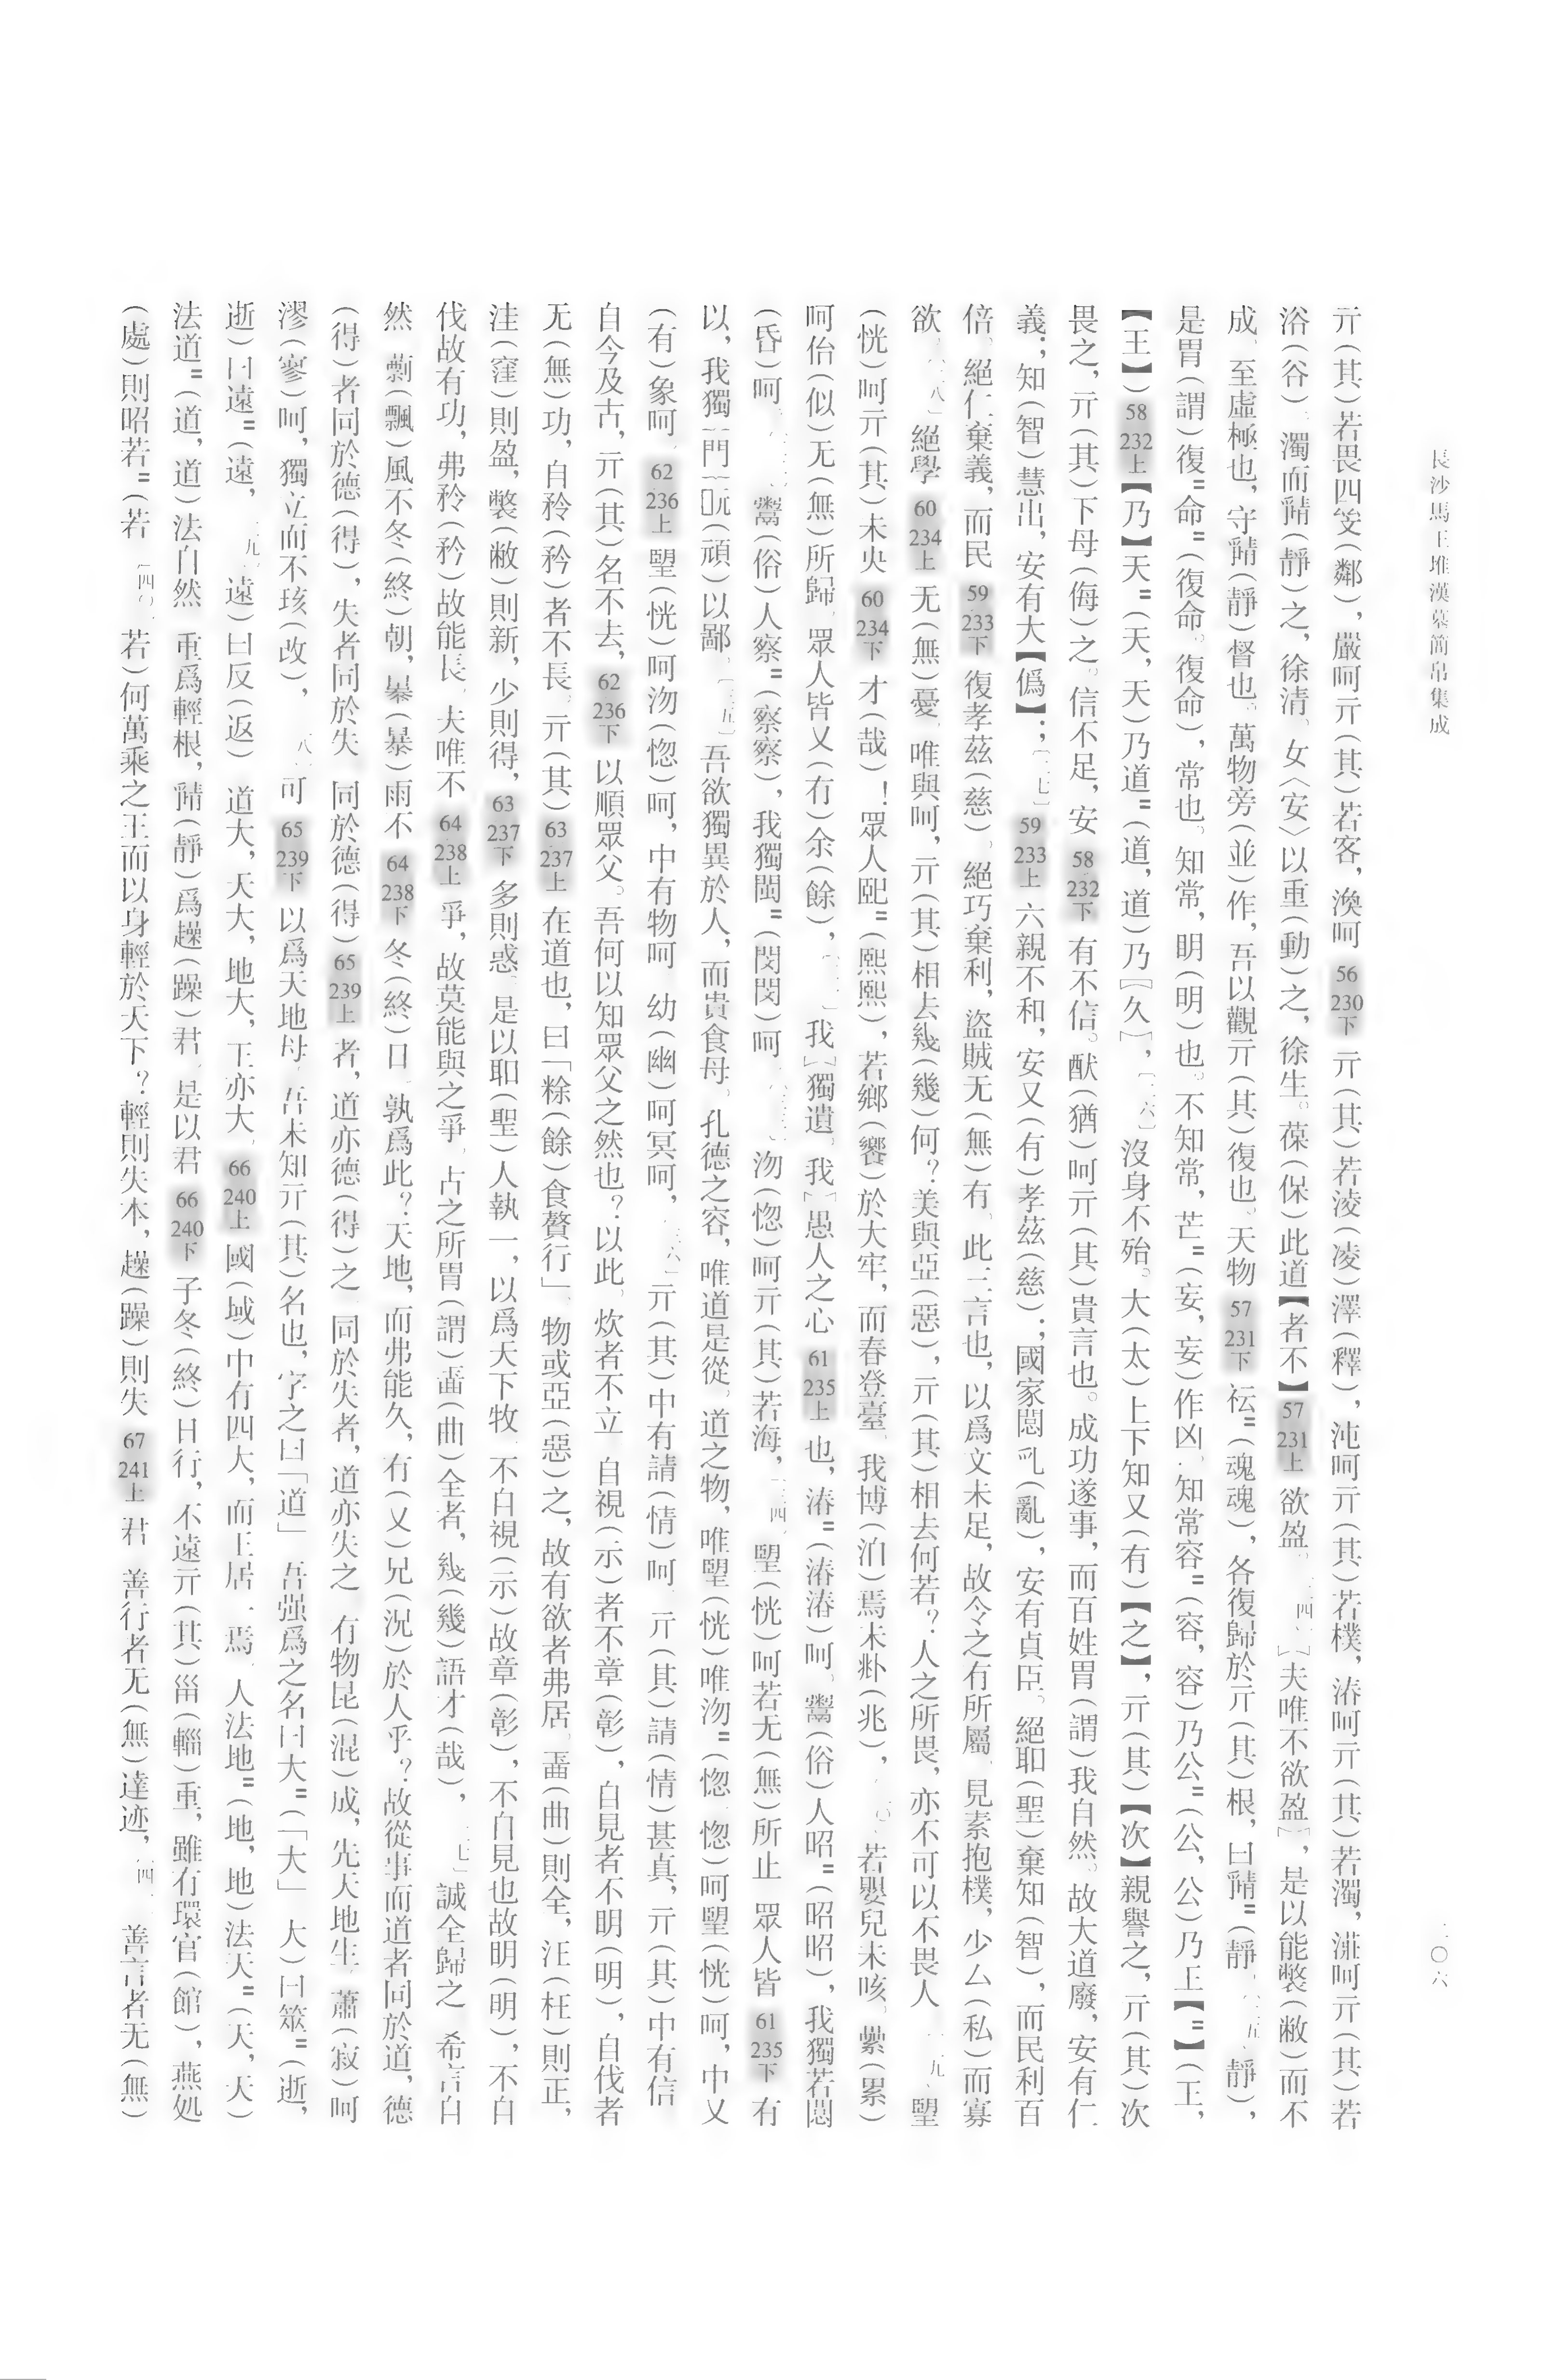 長沙馬王堆漢墓簡帛集成
二〇六
亓(其)若畏四𠳵(鄰),嚴呵亓(其)若客,渙呵56 230下亓(其)若淩(凌)澤(釋),沌呵亓(其)若樸,湷呵亓(其)若濁,𣽈呵亓(其)若
浴(谷)。濁而靜(靜)之,徐清。女〈安〉以重(動)之,徐生。葆(保)此道【者不】57 231上欲盈。〔夫唯不欲盈〕,是以能褩(敝)而不
成。至虛極也,守靜(靜)督也。萬物旁(並)作,吾以觀亓(其)復也。天物57 231下祘=(魂魂),各復歸於亓(其)根,曰靜=(靜。靜),
是胃(謂)復=命=(復命。復命),常也。知常,明(明)也。不知常,芒=(妄,妄)作凶。知常容=(容,容)乃公=(公,公)乃王【=】(王,
【王】)58 232上【乃】天=(天,天)乃道=(道,道)乃〔久〕,沒身不殆。大(太)上下知又(有)【之】,亓(其)【次】親譽之,亓(其)次
畏之,亓(其)下母(侮)之。信不足,安58 232下有不信。猷(猶)呵亓(其)貴言也。成功遂事,而百姓胃(謂)我自然。故大道廢,安有仁
義;知(智)慧出,安有大【僞】;〔一七〕59 233上六親不和,安又(有)孝茲(慈);國家閻乿(亂),安有貞臣。絕耶(聖)棄知(智),而民利百
倍。絕仁棄義,而民59 233下復孝茲(慈)。絕巧棄利,盜賊无(無)有。此三言也,以爲文未足,故令之有所屬。見素抱樸,少厶(私)而寡
欲。〔一八〕絕學60 234上无(無)憂。唯與呵,亓(其)相去幾(幾)何?美與亞(惡),亓(其)相去何若?人之所畏,亦不可以不畏人。〔一九〕朢
(恍)呵亓(其)未央60 234下才(哉)!眾人巸=(熙熙),若鄉(饗)於大牢,而春登臺。我博(泊)焉未𠧞(兆),若嬰兒未咳。纍(累)
呵佁(似)无(無)所歸。眾人皆又(有)余(餘),我〔獨遺。我〕愚人之心61 235上也,湷=(湷湷)呵。鬻(俗)人昭=(昭昭),我獨若閻
(昏)呵。鬻(俗)人察=(察察),我獨閩=(閔閔)呵。沕(惚)呵亓(其)若海,朢(恍)呵若无(無)所止。眾人皆61 235下有
以,我獨門𠇾(頑)以鄙。吾欲獨異於人,而貴食母。孔德之容,唯道是從。道之物,唯朢(恍)唯沕=(惚。惚)呵朢(恍)呵,中又
(有)象呵。62 236上朢(恍)呵沕(惚)呵,中有物呵。幼(幽)呵冥呵,亓(其)中有請(情)呵。亓(其)請(情)甚真,亓(其)中有信。
自今及古,亓(其)名不去,62 236下以順眾父。吾何以知眾父之然也?以此。炊者不立。自視(示)者不章(彰),自見者不明(明),自伐者
无(無)功,自矜(矜)者不長。亓(其)63 237上在道也,曰「粽(餘)食贅行」。物或亞(惡)之,故有欲者弗居。𠚖(曲)則全,汪(枉)則正,
洼(窪)則盈,褩(敝)則新,少則得,63 237下多則惑。是以耶(聖)人執一,以爲天下牧。不自視(示)故章(彰),不自見也故明(明),不自
伐故有功,弗矜(矜)故能長。夫唯不64 238上爭,故莫能與之爭。古之所胃(謂)𠚖(曲)全者,幾(幾)語才(哉),誠全歸之。希言自
然。𠞙(飄)風不冬(終)朝,暴(暴)雨不64 238下冬(終)日。孰爲此?天地,而弗能久,有(又)兄(況)於人乎?故從事而道者同於道,德
(得)者同於德(得),失者同於失。同於德(得)65 239上者,道亦德(得)之。同於失者,道亦失之。有物昆(混)成,先天地生。蕭(寂)呵
漻(寥)呵,獨立而不玹(改),可65 239下以爲天地母。吾未知亓(其)名也,字之曰「道」。吾強爲之名曰大=(「大」。大)曰筮=(逝,
逝)曰遠=(遠,遠)曰反(返)。道大,天大,地大,王亦大。66 240上國(域)中有四大,而王居一焉。人法地=(地,地)法天=(天,天)
法道=(道,道)法自然。重爲輕根,靜(靜)爲趮(躁)君。是以君66 240下子冬(終)日行,不遠亓(其)甾(輜)重,雖有環官(館),燕処
(處)則昭若=(若。若)何萬乘之王而以身輕於天下?輕則失本,趮(躁)則失67 241上君。善行者无(無)達迹,善言者无(無)